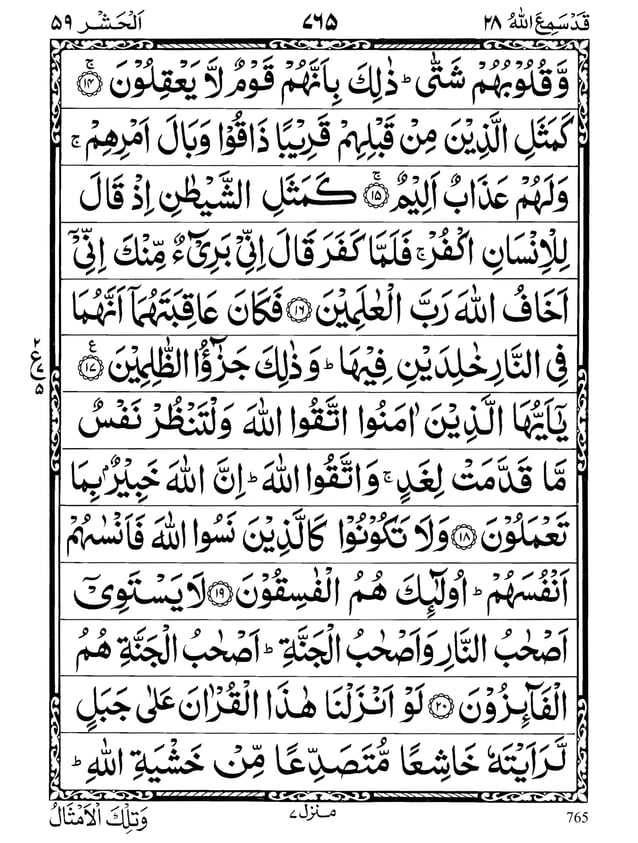 قَدْ سَمِعَ اللّٰهُ ٢٨ ٧٦٥ اَلْحَشْر ٥٩
وَّقُلُوْبُهُمْ شَتّٰىؕ ذٰلِكَ بِاَنَّهُمْ قَوْمٌ لَّا يَعْقِلُوْنَۚ ﴿۱۴﴾
كَمَثَلِ الَّذِيْنَ مِنْ قَبْلِهِمْ قَرِيْبًا ذَاقُوْا وَبَالَ اَمْرِهِمْۚ
وَلَهُمْ عَذَابٌ اَلِيْمٌۚ ﴿۱۵﴾ كَمَثَلِ الشَّيْطٰنِ اِذْ قَالَ
لِلْاِنْسَانِ اكْفُرْۚ فَلَمَّا كَفَرَ قَالَ اِنِّىْ بَرِىْٓءٌ مِّنْكَ اِنِّىْٓ
اَخَافُ اللّٰهَ رَبَّ الْعٰلَمِيْنَ ﴿۱۶﴾ فَكَانَ عَاقِبَتَهُمَاۤ اَنَّهُمَا
فِى النَّارِ خٰلِدَيْنِ فِيْهَاؕ وَذٰلِكَ جَزٰٓؤُا الظّٰلِمِيْنَ ﴿۱۷﴾ ع
٢
ع ٧
٥
يٰۤاَيُّهَا الَّذِيْنَ اٰمَنُوا اتَّقُوا اللّٰهَ وَلْتَنْظُرْ نَفْسٌ
مَّا قَدَّمَتْ لِغَدٍۚ وَاتَّقُوا اللّٰهَؕ اِنَّ اللّٰهَ خَبِيْرٌۢ بِمَا
تَعْمَلُوْنَ ﴿۱۸﴾ وَلَا تَكُوْنُوْا كَالَّذِيْنَ نَسُوا اللّٰهَ فَاَنْسٰىهُمْ
اَنْفُسَهُمْؕ اُولٰٓئِكَ هُمُ الْفٰسِقُوْنَ ﴿۱۹﴾ لَا يَسْتَوِىْٓ
اَصْحٰبُ النَّارِ وَاَصْحٰبُ الْجَنَّةِؕ اَصْحٰبُ الْجَنَّةِ هُمُ
الْفَآئِزُوْنَ ﴿۲۰﴾ لَوْ اَنْزَلْنَا هٰذَا الْقُرْاٰنَ عَلٰى جَبَلٍ
لَّرَاَيْتَهٗ خَاشِعًا مُّتَصَدِّعًا مِّنْ خَشْيَةِ اللّٰهِؕ
وَتِلْكَ الْاَمْثَالُ منزل ٧ 765